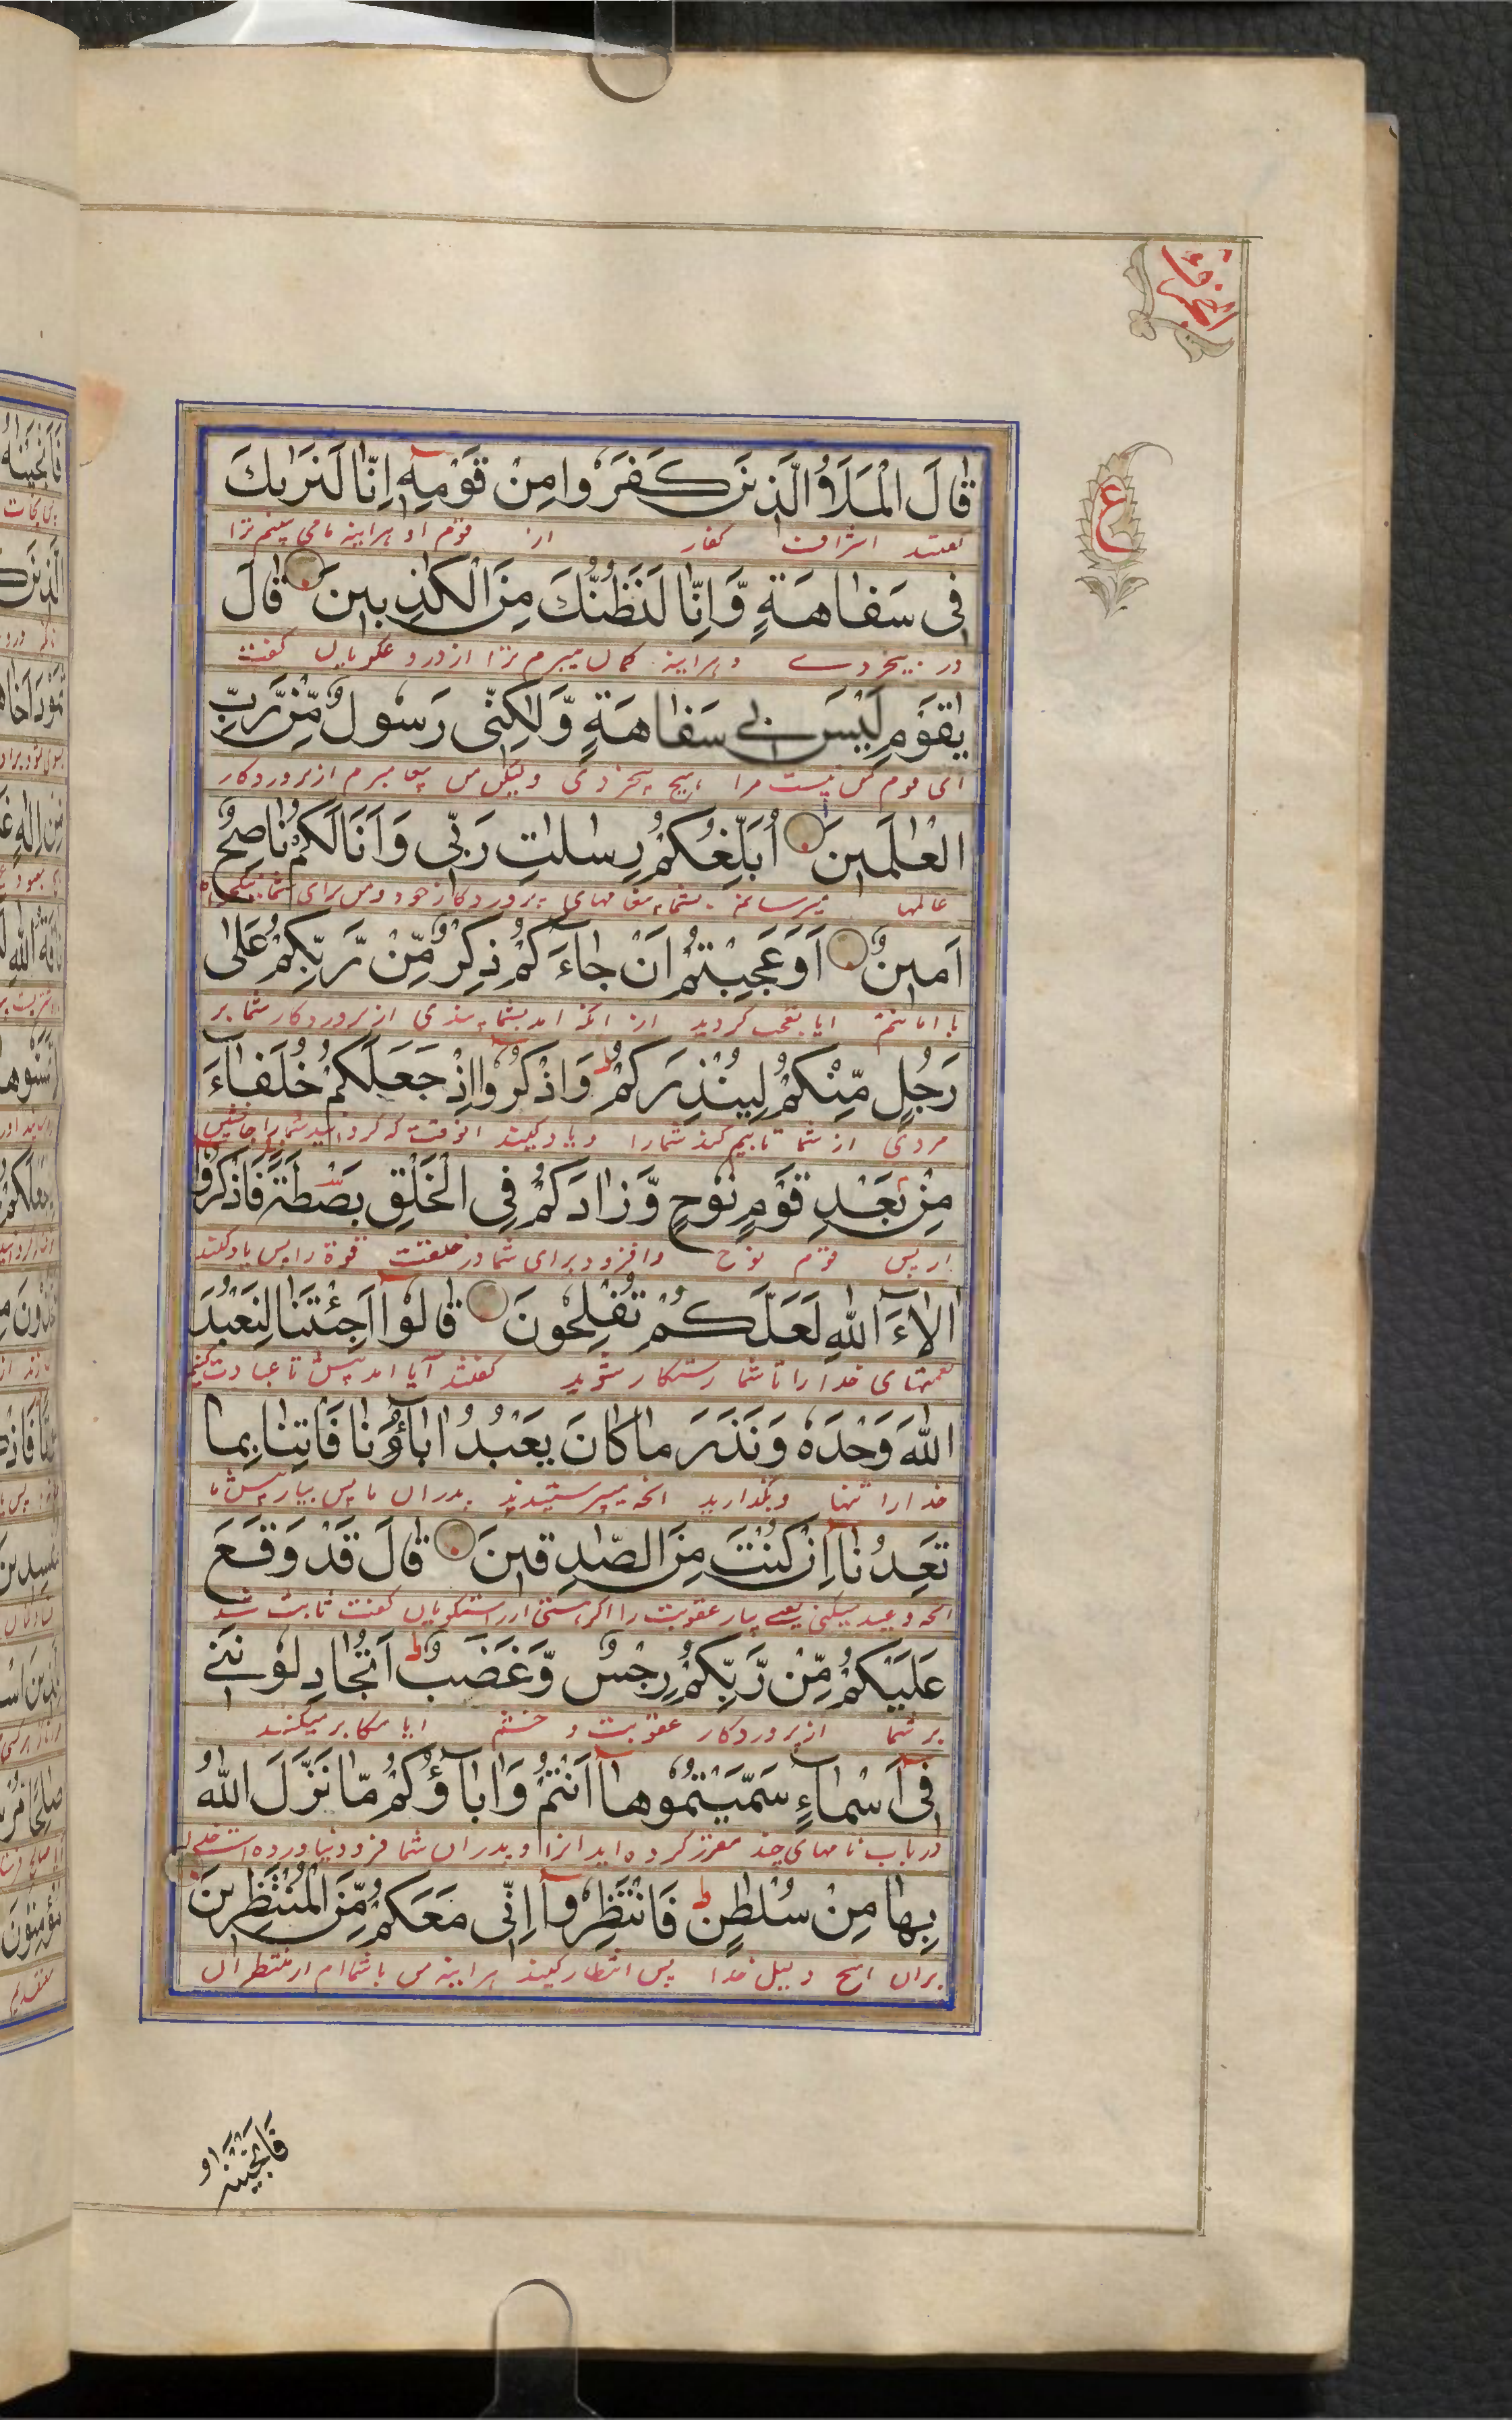 قَالَ الْمَلَاُ الَّذِیْنَ كَفَرُوا مِنْ قَوْمِهٖٓ اِنَّا لَنَرٰىكَ
گفتند اشراف کفار از قوم او هراینه ما می بینم ترا
فِی سَفَاهَةٍ وَّاِنَّا لَنَظُنُّكَ مِنَ الْكٰذِبِینَ قَالَ
در بیخردے و هراینه کمان میبرم ترا از دروغکویان گفت
یٰقَوْمِ لَیْسَ بِی سَفَاهَةٍ وَّلٰكِنِّی رَسُولٌ مِّنْ رَّبِّ
ای قوم من نیست مرا هیچ بیخردی ولیکن من پیغامبرم از پروردکار
الْعٰلَمِینَ اُبَلِّغُكُمْ رِسٰلٰتِ رَبِّی وَاَنَا لَكُمْ نَاصِحٌ
عالمها میرسانم بشما پیغامهای پروردکار خود و من برای شما
اَمِینٌ اَوَعَجِبْتُمْ اَنْ جَآءَكُمْ ذِكْرٌ مِّنْ رَّبِّكُمْ عَلٰى
با امانتم ایا تعجب کردید از انکه امد بشما پندی از پروردکار شما بر
رَجُلٍ مِّنْكُمْ لِیُنْذِرَكُمْ ط وَاذْكُرُوا اِذْ جَعَلَكُمْ خُلَفَآءَ
مردی از شما تا بیم کند شمارا و یاد کنید انوقت که کردانید شمارا جانشین
مِنْ بَعْدِ قَوْمِ نُوحٍ وَّزَادَكُمْ فِی الْخَلْقِ بَصْطَةً فَاذْكُرُوا
از پس قوم نوح و افزود برای شما در خلقت قوة را پس یاد کنید
اٰلَآءَ اللّٰهِ لَعَلَّكُمْ تُفْلِحُونَ قَالُوا اَجِئْتَنَا لِنَعْبُدَ
نعمتهای خدا را تا شما رستکار شوید کفتند آیا امد پیش ما تا عبادت کنیم
اللّٰهَ وَحْدَهٗ وَنَذَرَ مَا كَانَ یَعْبُدُ اٰبَآؤُنَا فَاْتِنَا بِمَا
خدا را تنها و بگذارید انچه میپرستیدند پدران ما پس بیار پیش ما
تَعِدُنَا اِنْ كُنْتَ مِنَ الصّٰدِقِینَ قَالَ قَدْ وَقَعَ
انچه وعید میکنی یعنے بیار عقوبت را اگر هستی از راستکویان کفت ثابت شد
عَلَیْكُمْ مِّنْ رَّبِّكُمْ رِجْسٌ وَّغَضَبٌ ط اَتُجَادِلُونَنِی
بر شما از پروردکار عقوبت و خشم ایا مکابر میکنید
فِیٓ اَسْمَآءٍ سَمَّیْتُمُوهَا اَنْتُمْ وَاٰبَآؤُكُمْ مَّا نَزَّلَ اللّٰهُ
در باب نامهای چند مقرر کرده اید انرا و پدران شما فرود نیاورده است خدا
بِهَا مِنْ سُلْطٰنٍ ط فَانْتَظِرُوٓا اِنِّی مَعَكُمْ مِّنَ الْمُنْتَظِرِینَ
بران هیچ دلیل خدا پس انتظار کنید هراینه من با شماام از منتظران
ع
فَاَنْجَیْنٰهُ و